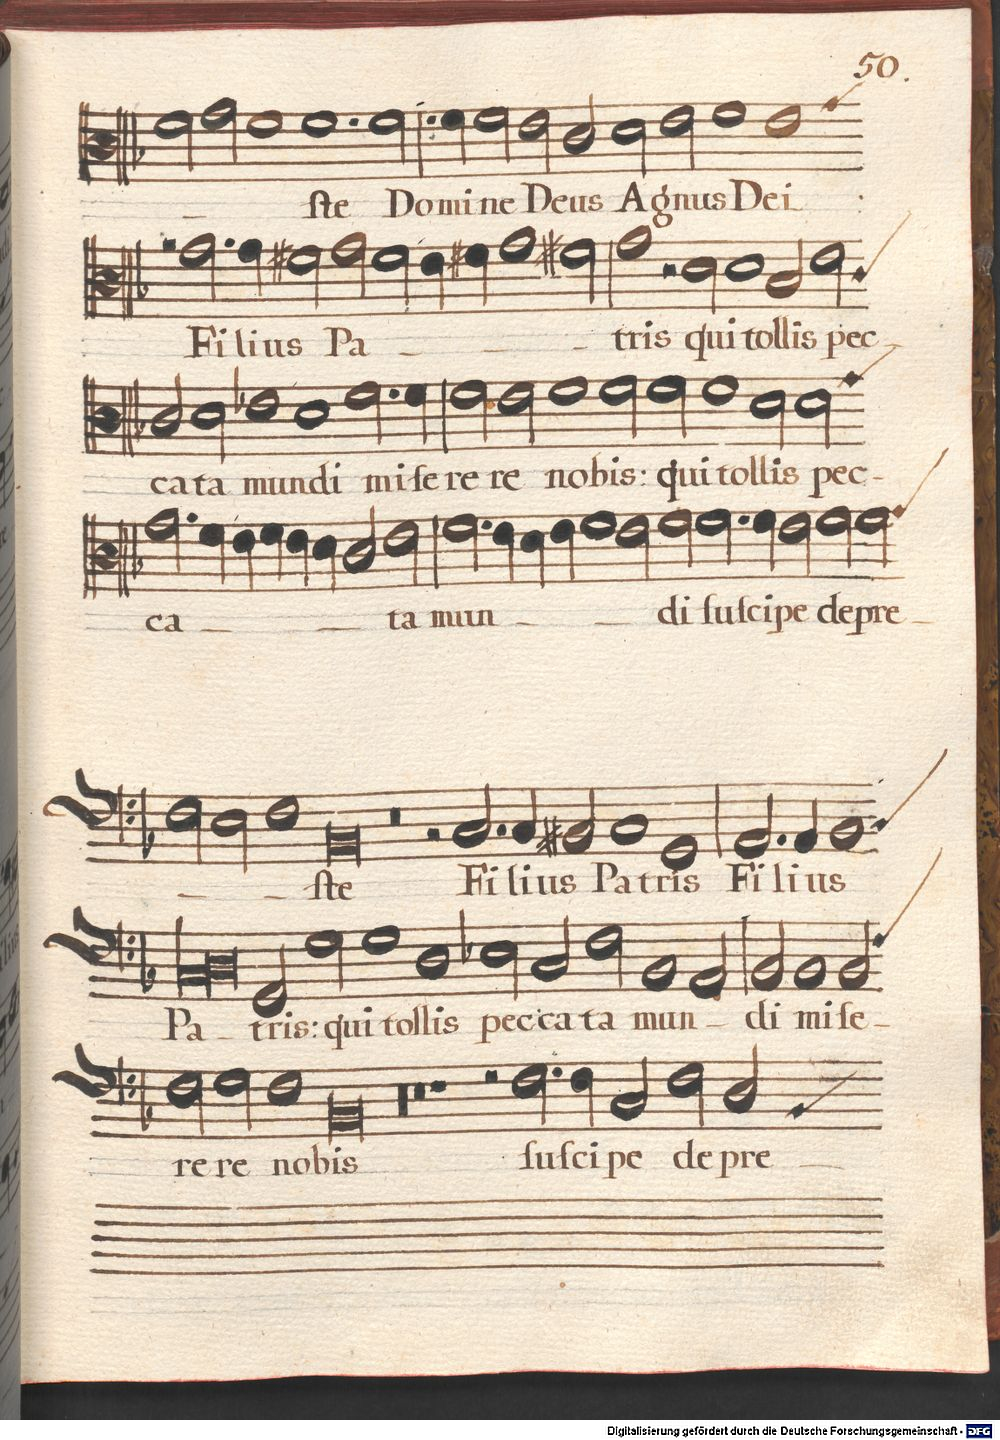 50.
_ ſte Domine Deus Agnus Dei :
Filius Pa _ _ _ tris qui tollis pec_
cata mundi miſerere nobis: qui tollis pec-
ca _ _ ta mun _ _ di ſuſcipe depre _
_ _ ſte Filius Patris Filius
Pa _ tris: qui tollis peccata mun _ di miſe_
rere nobis ſuſcipe depre _
Digitalisierung gefördert durch die Deutsche Forschungsgemeinschaft - DFG